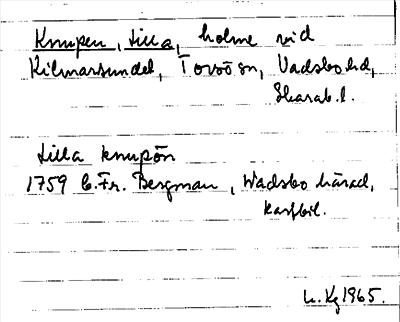 Knupen, lilla, holme vid
Kilmarsundet, Torsö sn, Vadsbo hd,
Skarab. l.
lilla knupön
1759 C. Fr. Bergman, Wadsbo härad,
kartbil.
L. Kg 1965.